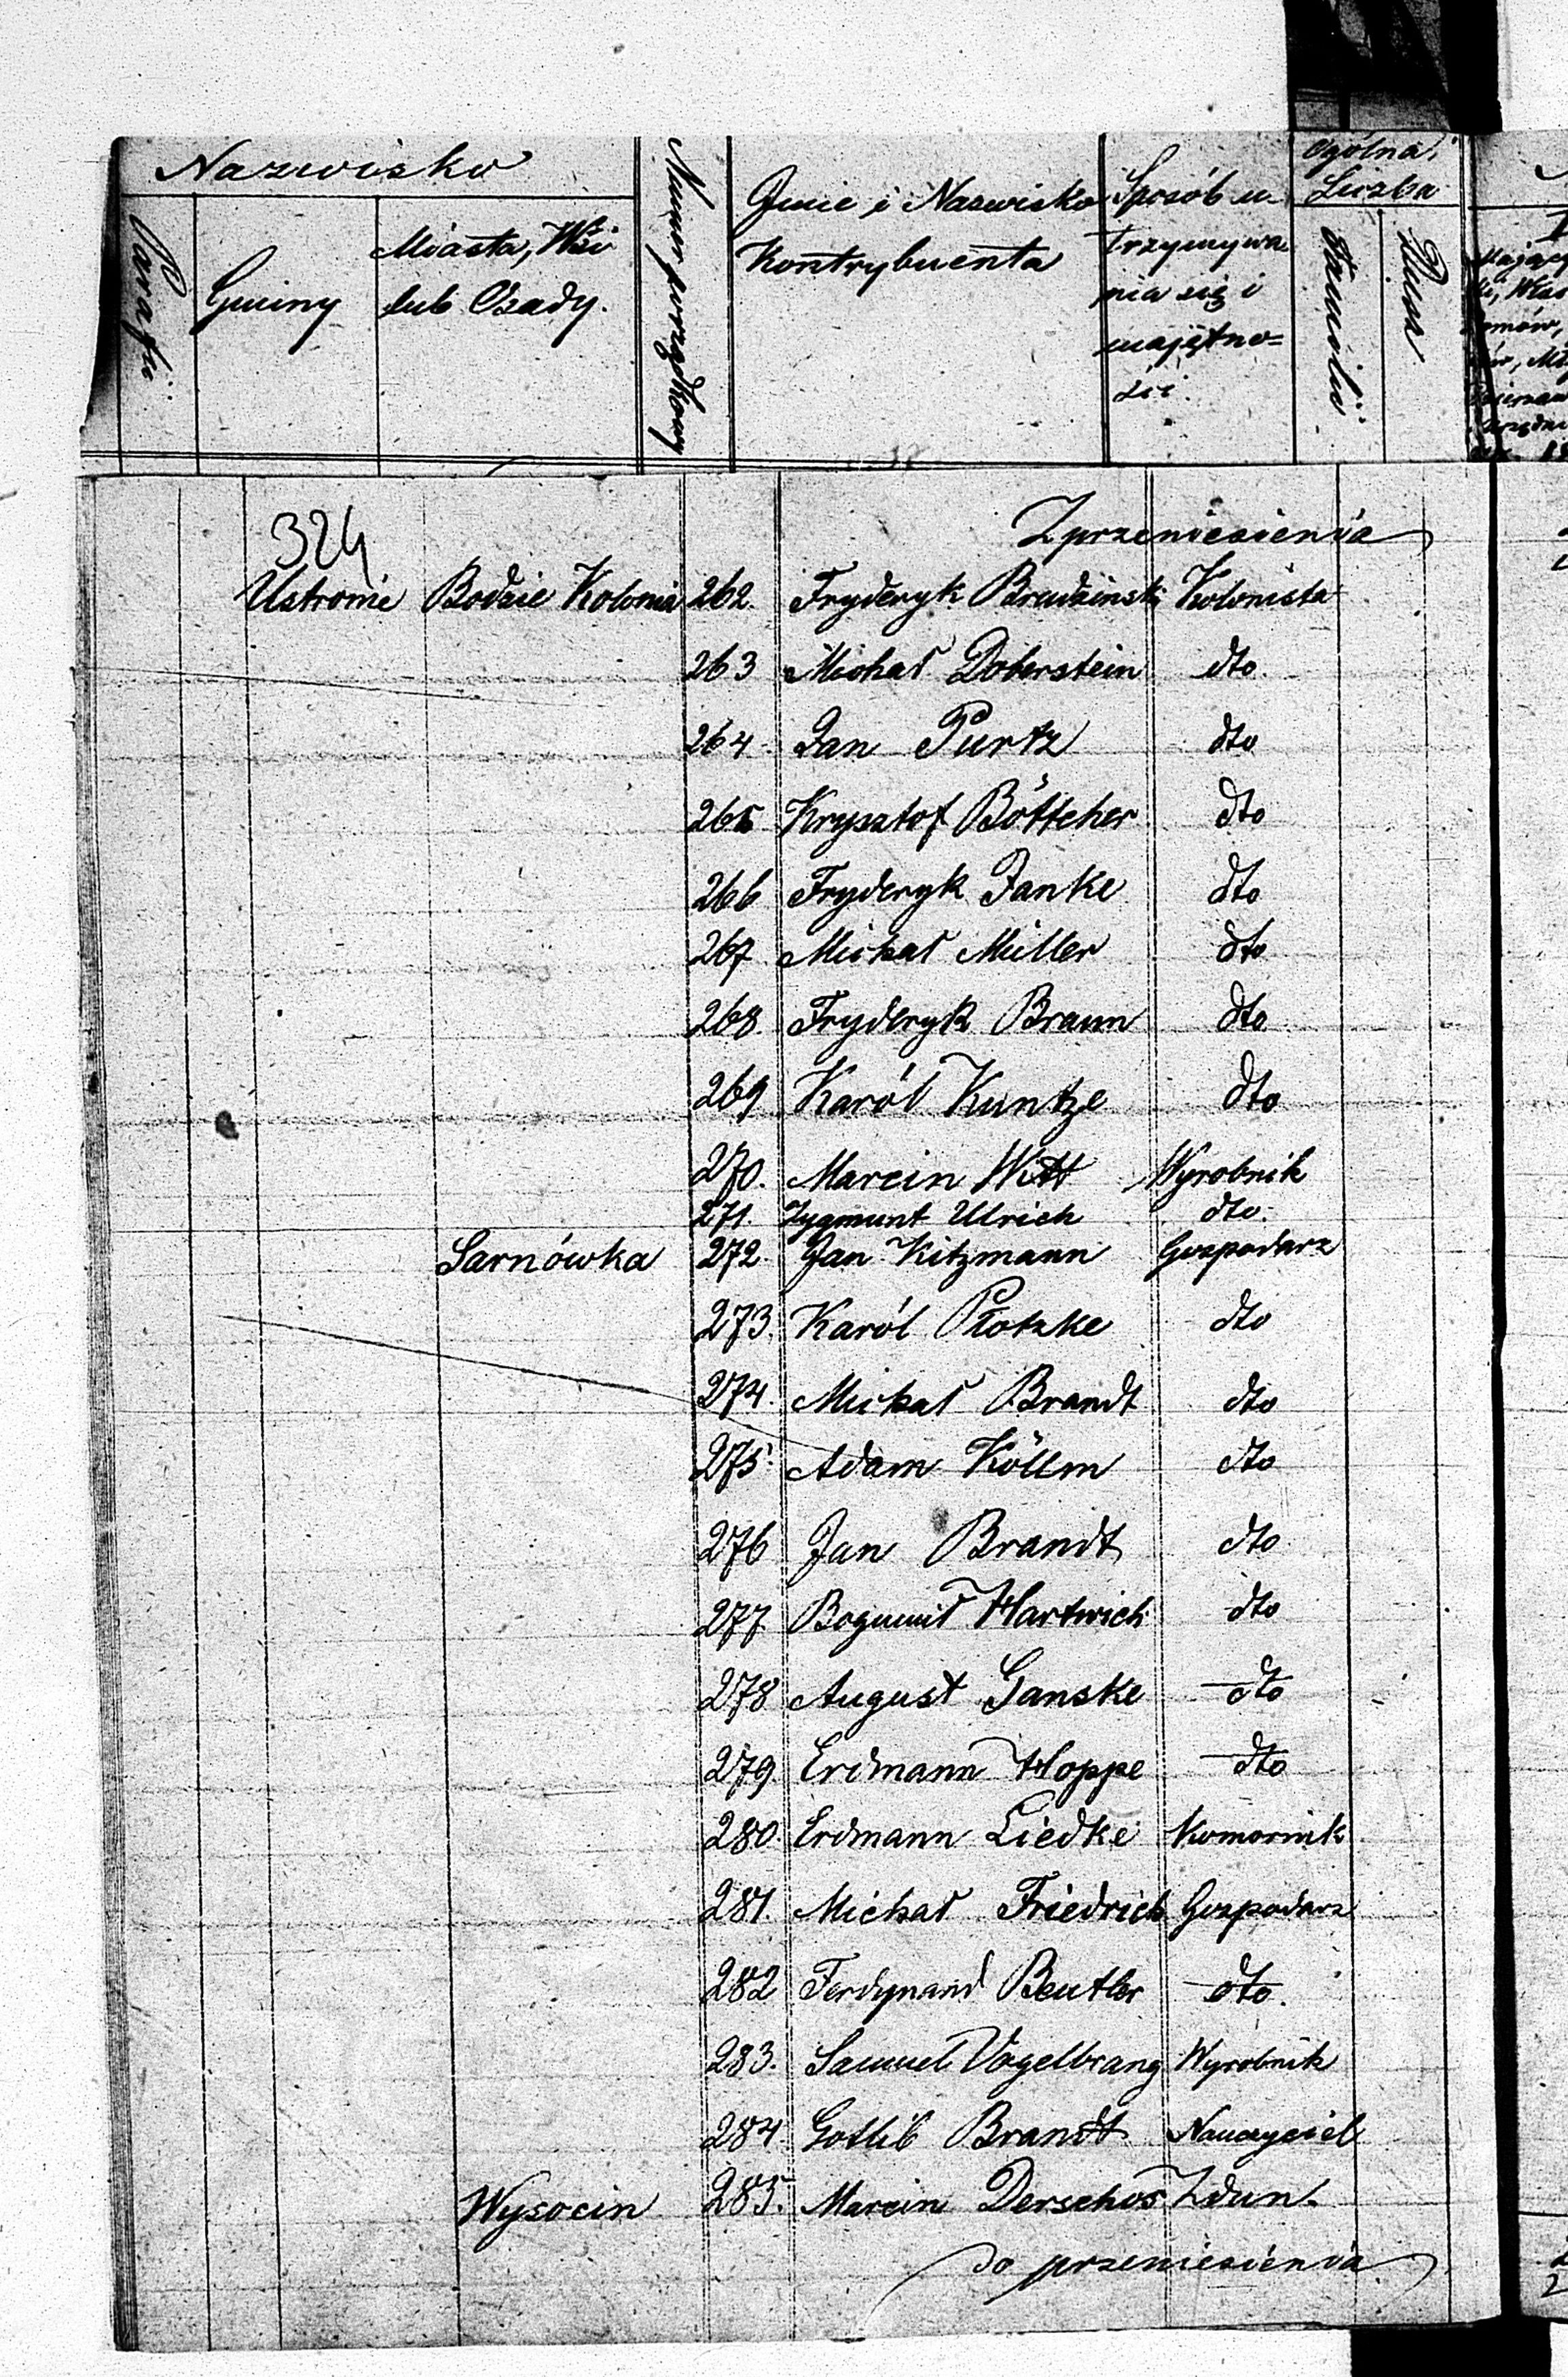 Nazwisko
Parafii
Gminy
Miasta, Wsi
lub Osady.
Numer porządkowy
Imie i Nazwisko
Kontrybuenta
Sposób u-
trzymywa
nia się i
majętno=
ści.
Ogólna
Liczba
Familii
Dusz
324
Z przeniesienia
Ustronie Bodzie Kolonia 262. Fryderyk Brudzinski Kolonista
263 Michał Doberstein dto.
264 Jan Purtz dto
265 Krysztof Böttcher dto
266 Fryderyk Janke dto
267 Michał Müller dto
268. Fryderyk Braun dto
269 Karól Kuntze dto
270. Marcin Witt Wyrobnik
271. Zygmunt Ulrich dto.
Sarnówka 272. Jan Kitzmann Gospodarz
273. Karól Płotzke dto
274. Michał Brandt dto
275. Adam Köllm dto
276 Jan Brandt dto
277. Bogumił Hartwich dto
278 August Ganske dto
279. Erdmann Hoppe dto
280. Erdmann Liedke Komornik
281. Michał Friedrich Gospodarz
282 Ferdynand Beutler dto.
283. Samuel Vogelbrang Wyrobnik
284. Gotlib Brandt Nauczyciel
Wysocin 285. Marcin Derschos Zdun.
do przeniesienia